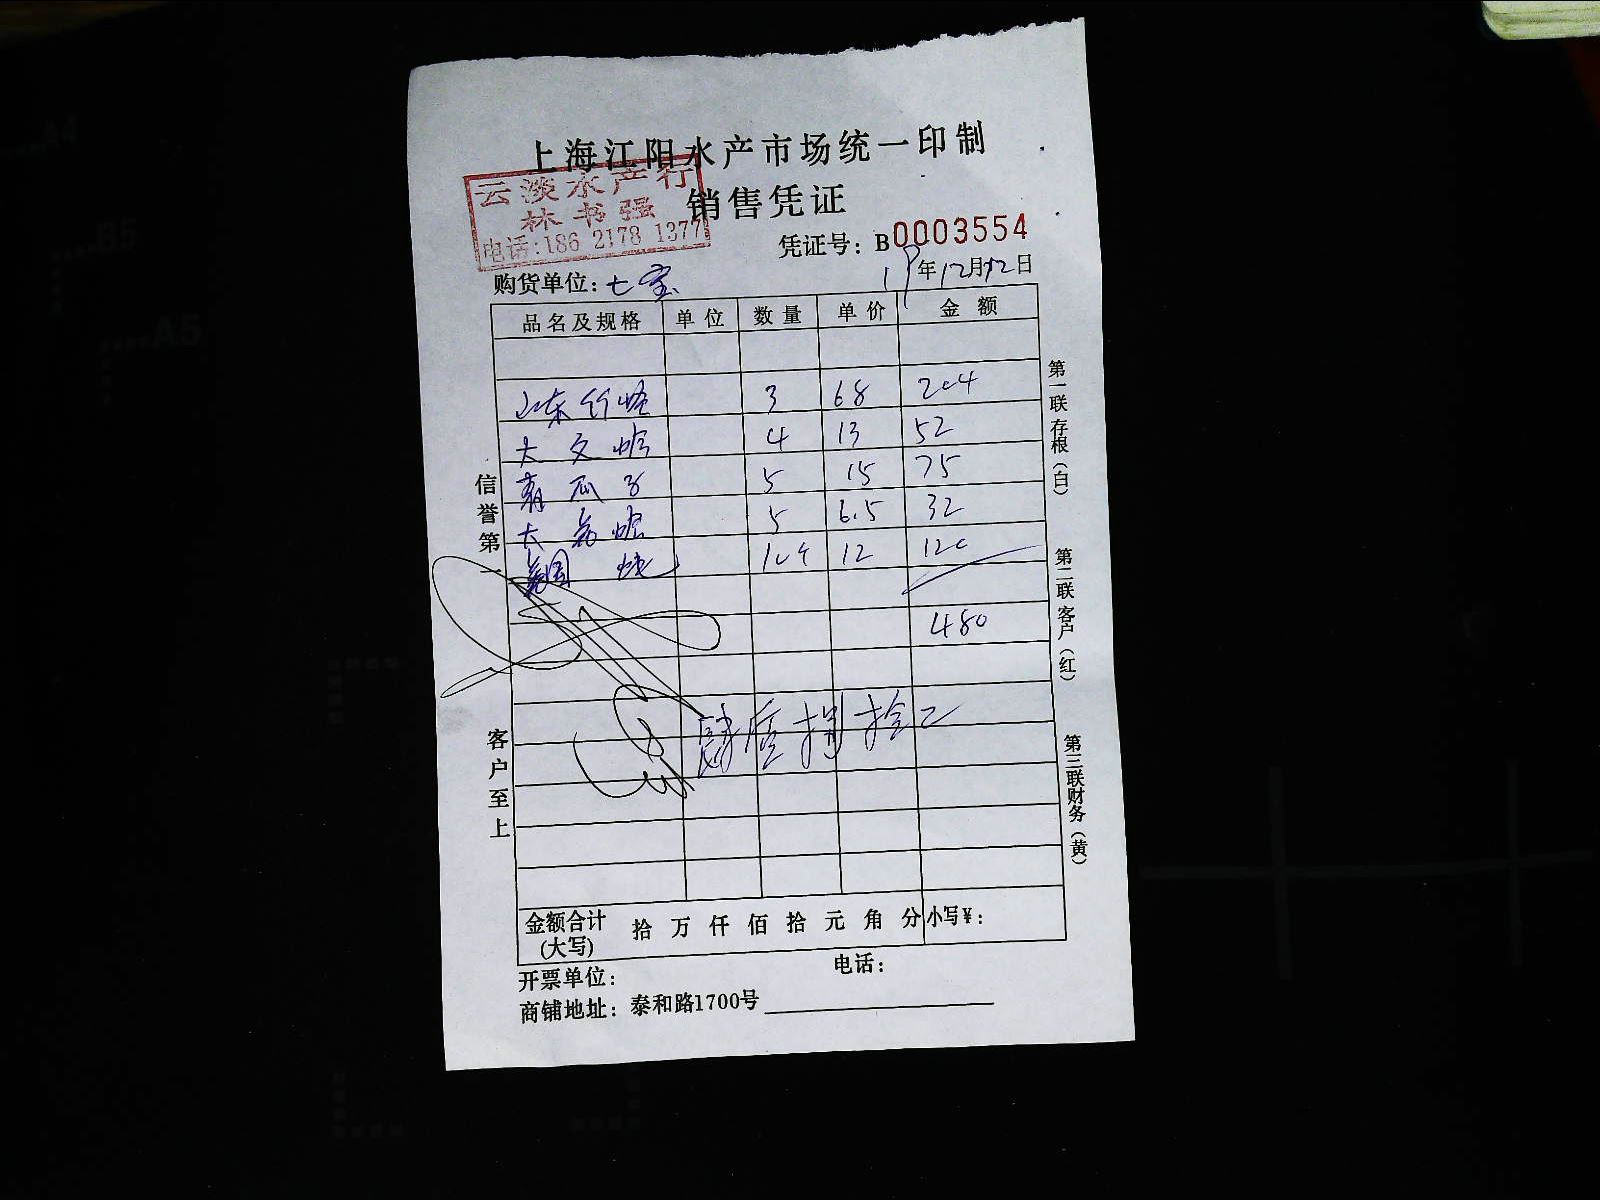 上海江阳水产市场统一印制
云淡水产行
林书强
电话:186 2178 1377
销售凭证
凭证号: B0003554
19年12月12日
购货单位:七宝
品名及规格 单位 数量 单价 金额
山东竹蛏 3 68 204
大文蛤 4 13 52
青瓜子 5 15 75
大 5 6.5 32
12 120
480
肆 捌拾
金额合计(大写) 拾 万 仟 佰 拾 元 角 分 小写¥:
开票单位: 电话:
商铺地址: 泰和路1700号
信誉第一
客户至上
第一联存根(白)
第二联客户(红)
第三联财务(黄)